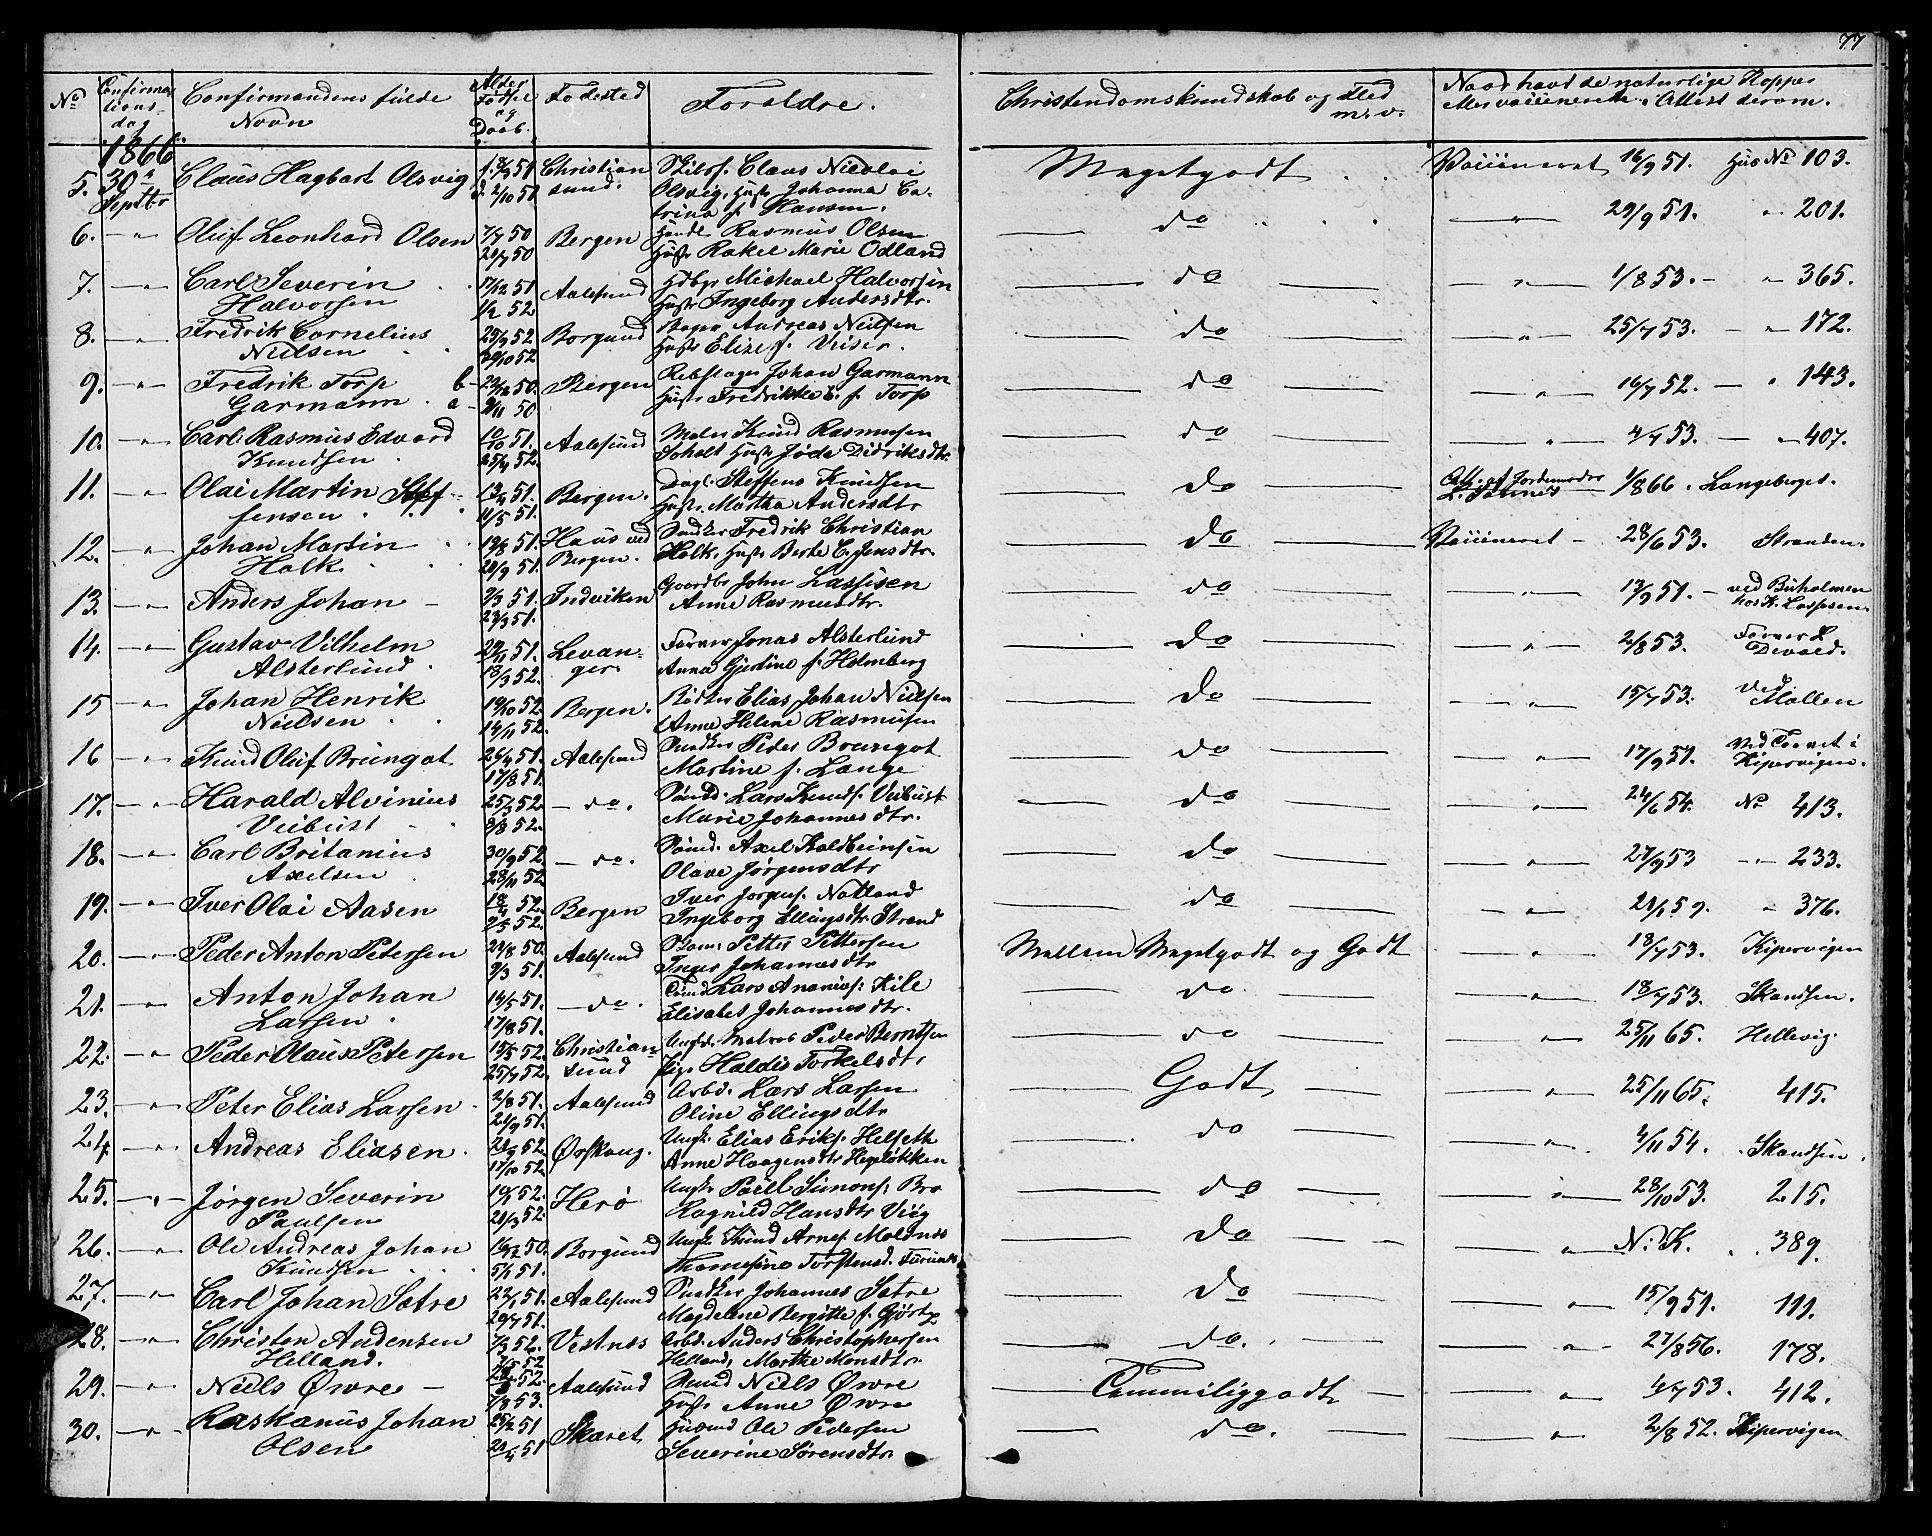 77
No Confirmations dag Confirmandens fulde Navn Alder Fødsel og Daab. Fødested Forældre. Christendomskundskab og Flid m. v. Naar havt de naturlige Kopper eller vaccinerede. Attest derom.
1866
5. 30te Septbr Claus Hagbart Olsvig Christian sund. Claus Nicolai Olsvig, Hustr Johanna Ca- trina f. Hansen. Megetgodt Vaccineret 16/9 51. Hus No 103.
6. —"— Oluf Leonhard Olsen 7/7 50 Bergen Rasmus Olsen Hustr Rakel Marie Odland do —"— 29/9 51. " 201.
7. —"— Carl Severin Halvorsen 17/12 51 1/2 52 Aalesund Michael Halvorsen Hustr Ingeborg Andersdtr. do —"— 1/8 53. — " 365.
8. —"— Fredrik Cornelius Nielsen 25/9 52 Borgund Bager Andreas Nielsen Hustr Elise f. Viser. do —"— 25/7 53. — " 172.
9. —"— Fredrik Torp Garmann Bergen Rebslager Johan Garmann Hustr Fredrikke f. Torp do —"— 16/7 52. — " 143.
10. —"— Carl Rasmus Edvard Knudsen 10/10 51. 25/4 52. Aalesund Maler Knud Rasmusen Hustr Didriksdtr. do —"— 4/7 53. — " 407.
11. —"— Olai Martin Stef- fensen 13/4 51. 11/5 51. Bergen. Dagl. Steffens Knudsen Hustr. Martha Andersdtr do Att. af Jordemoder 1/8 66. Langeberget.
12. —"— Johan Martin Holk. 19/8 51. 28/9 51. Haus ved Bergen. Snedker Fredrik Christian Holk, Hustr Berte C. Jensdtr. do Vaccineret — 28/6 53. Stranden.
13. —"— Anders Johan — 2/3 51. 23/3 51. Indviken Gaardbr John Lassesen Anne Rasmusdtr. do —"— 13/9 51. — ved Buholmen hos K. Lassesen.
14. —"— Gustav Vilhelm Alsterlund. 29/11 51. 13/3 52. Levan- ger. Farver Jonas Alsterlund Anna Gjertine f. Holmberg do —"— 2/8 53. Farver Devold.
15 —"— Johan Henrik Nielsen 19/10 52. 14/11 52. Bergen. Bødker Elias Johan Nielsen Anne Helene Rasmusen do —"— 15/7 53. Ved Møllen
16 —"— Knud Oluf Brungot 26/4 51. 17/8 51. Aalesund Snedker Peder Brungot Martine f. Lange do —"— 17/9 51. Ved Torvet i Kipervigen.
17. —"— Harald Alvinius Veibust 25/3 52. 8/8 52. — do. Lars Knuds. Veibust Marie Johannesdtr. do —"— 24/6 54. No 413.
18. —"— Carl Britanius Axelsen 30/9 52 28/11 52 — do. Axel Kolbeinsen Olave Jørgensdtr do —"— 27/9 53 —"— 233.
19. —"— Iver Olai Aasen 18/4 52. 9/5 52. Bergen Iver Jørgens. Natland Ingeborg Ellingsdtr. Strand do —"— " 376.
20. —"— Peder Anton Petersen 29/8 50. 9/3 51. Aalesund Petter Pettersen Inger Johannesdtr Mellem Megetgodt og Godt —"— 18/7 53. Kipervigen
21. —"— Anton Johan Larsen. 14/5 51. 17/8 51. —do. Lars Ananias. Kile Elisabet Johannesdtr. do —"— 18/7 53. Skandsen.
22. —"— Peder Olaus Petersen 19/5 52. 25/7 52. Christian- sund Matros Peder Berntsen Pige Haldis Torkelsdtr do —"— 25/11 65. Hellevig.
23. —"— Peter Elias Larsen 2/8 51. 21/9 51. Aalesund Arbd. Lars Larsen Oline Ellingsdtr Godt —"— 25/11 65. 415.
24. —"— Andreas Eliasen. 17/10 52. Ørskoug. Ungk. Elias Eriks. Helseth Anne Haagensdtr do —"— 4/11 54. Skandsen.
25. —"— Jørgen Severin Paulsen 21/3 52. Herø Ungk. Poül Simons. Bro Ragnild Hansdtr do —"— 28/10 53. 215.
26. —"— Ole Andreas Johan Knudsen 16/12 50. 5/1 51. Borgund Ungk. Knud Arnes. Moldnes Thomesine Torstensd. do —"— N. K. 389.
27. —"— Carl Johan Sætre 22/1 51. 20/7 51. Aalesund Snedker Johannes Sætre Magdelene Bergitte f. Gjørtz do —"— 15/9 51. 111.
28. —"— Christen Andersen Helland. 7/3 52. Vestnes Arbd. Anders Christophersen Helland, Marthe Monsdtr. do. —"— 27/8 56. 178.
29. —"— Niels Øwre — 7/8 53. Aalesund Niels Øwre Hustr Anne Øwre Temmeliggodt —"— 4/7 53. 412.
30. —"— Raskanus Johan Olsen 25/2 51 Skaret Husmd Ole Pedersen Severine Sørensdtr. do. —"— 2/8 52. Kipervigen